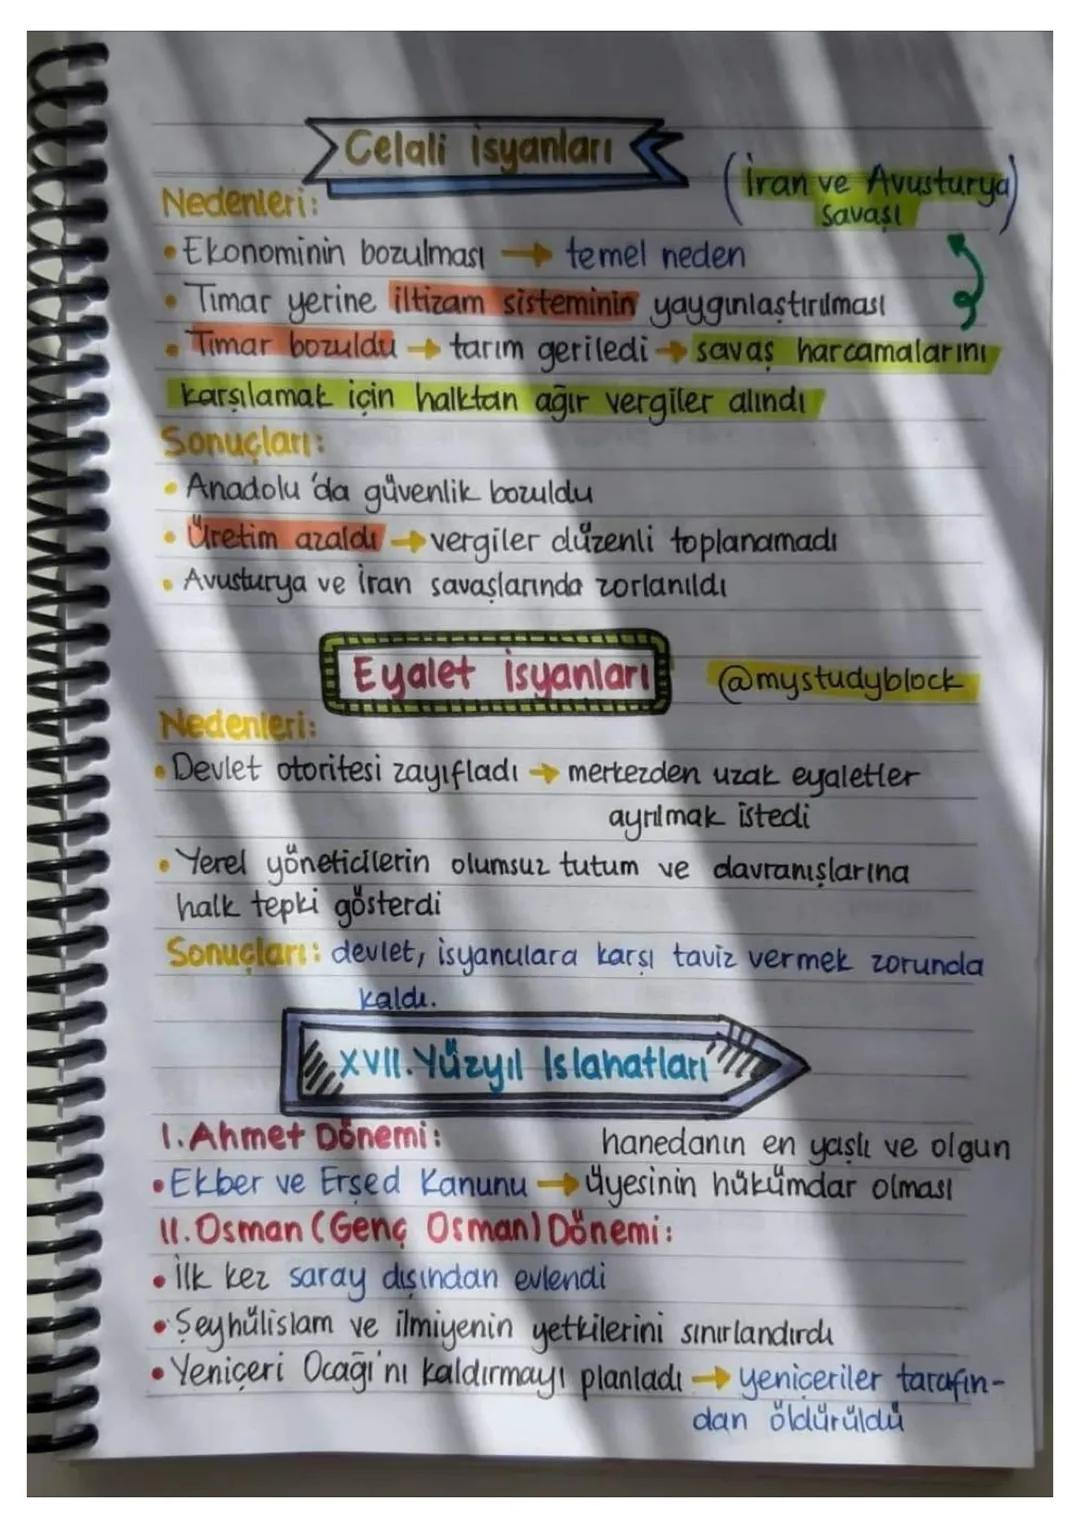 Celali isyanları
(İran ve Avusturya)
savaşı
Nedenleri:
• Ekonominin bozulması → temel neden
• Tımar yerine iltizam sisteminin yaygınlaştırılması
• Tımar bozuldu → tarım geriledi → savaş harcamalarını
karşılamak için halktan ağır vergiler alındı
Sonuçları:
• Anadolu'da güvenlik bozuldu
• Üretim azaldı → vergiler düzenli toplanamadı
• Avusturya ve İran savaşlarında zorlanıldı
Eyalet isyanları
@mystudyblock
Nedenleri:
• Devlet otoritesi zayıfladı → merkezden uzak eyaletler
ayrılmak istedi
• Yerel yöneticilerin olumsuz tutum ve davranışlarına
halk tepki gösterdi
Sonuçları: devlet, isyancılara karşı taviz vermek zorunda
kaldı.
XVII. Yüzyıl Islahatları
I. Ahmet Dönemi:
hanedanın en yaşlı ve olgun
• Ekber ve Erşed Kanunu → üyesinin hükümdar olması
II. Osman (Genç Osman) Dönemi:
• İlk kez saray dışından evlendi
• Şeyhülislam ve ilmiyenin yetkilerini sınırlandırdı
• Yeniçeri Ocağı'nı kaldırmayı planladı → yeniçeriler tarafın-
dan öldürüldü